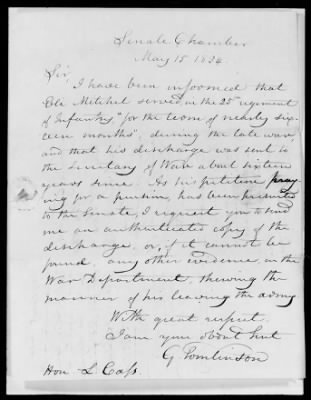 Senate Chamber
May 15 1834.
Sir,
I have been informed that
Ele Mitchel served, in the 25th regiment
of Infantry "for the term of nearly six-
-teen months", during the late war,
and that his discharge was sent to
the Secretary of War about sixteen
years since. As his petition praying
for a pension, has been presented
to the Senate, I request you to send
me an authenticated copy of the
discharge, or, if it cannot be
found, any other evidence, in the
War Department, shewing the
manner of his leaving the army
With great respect
I am your obedient Servt
G Tomlinson
Hon L Cass